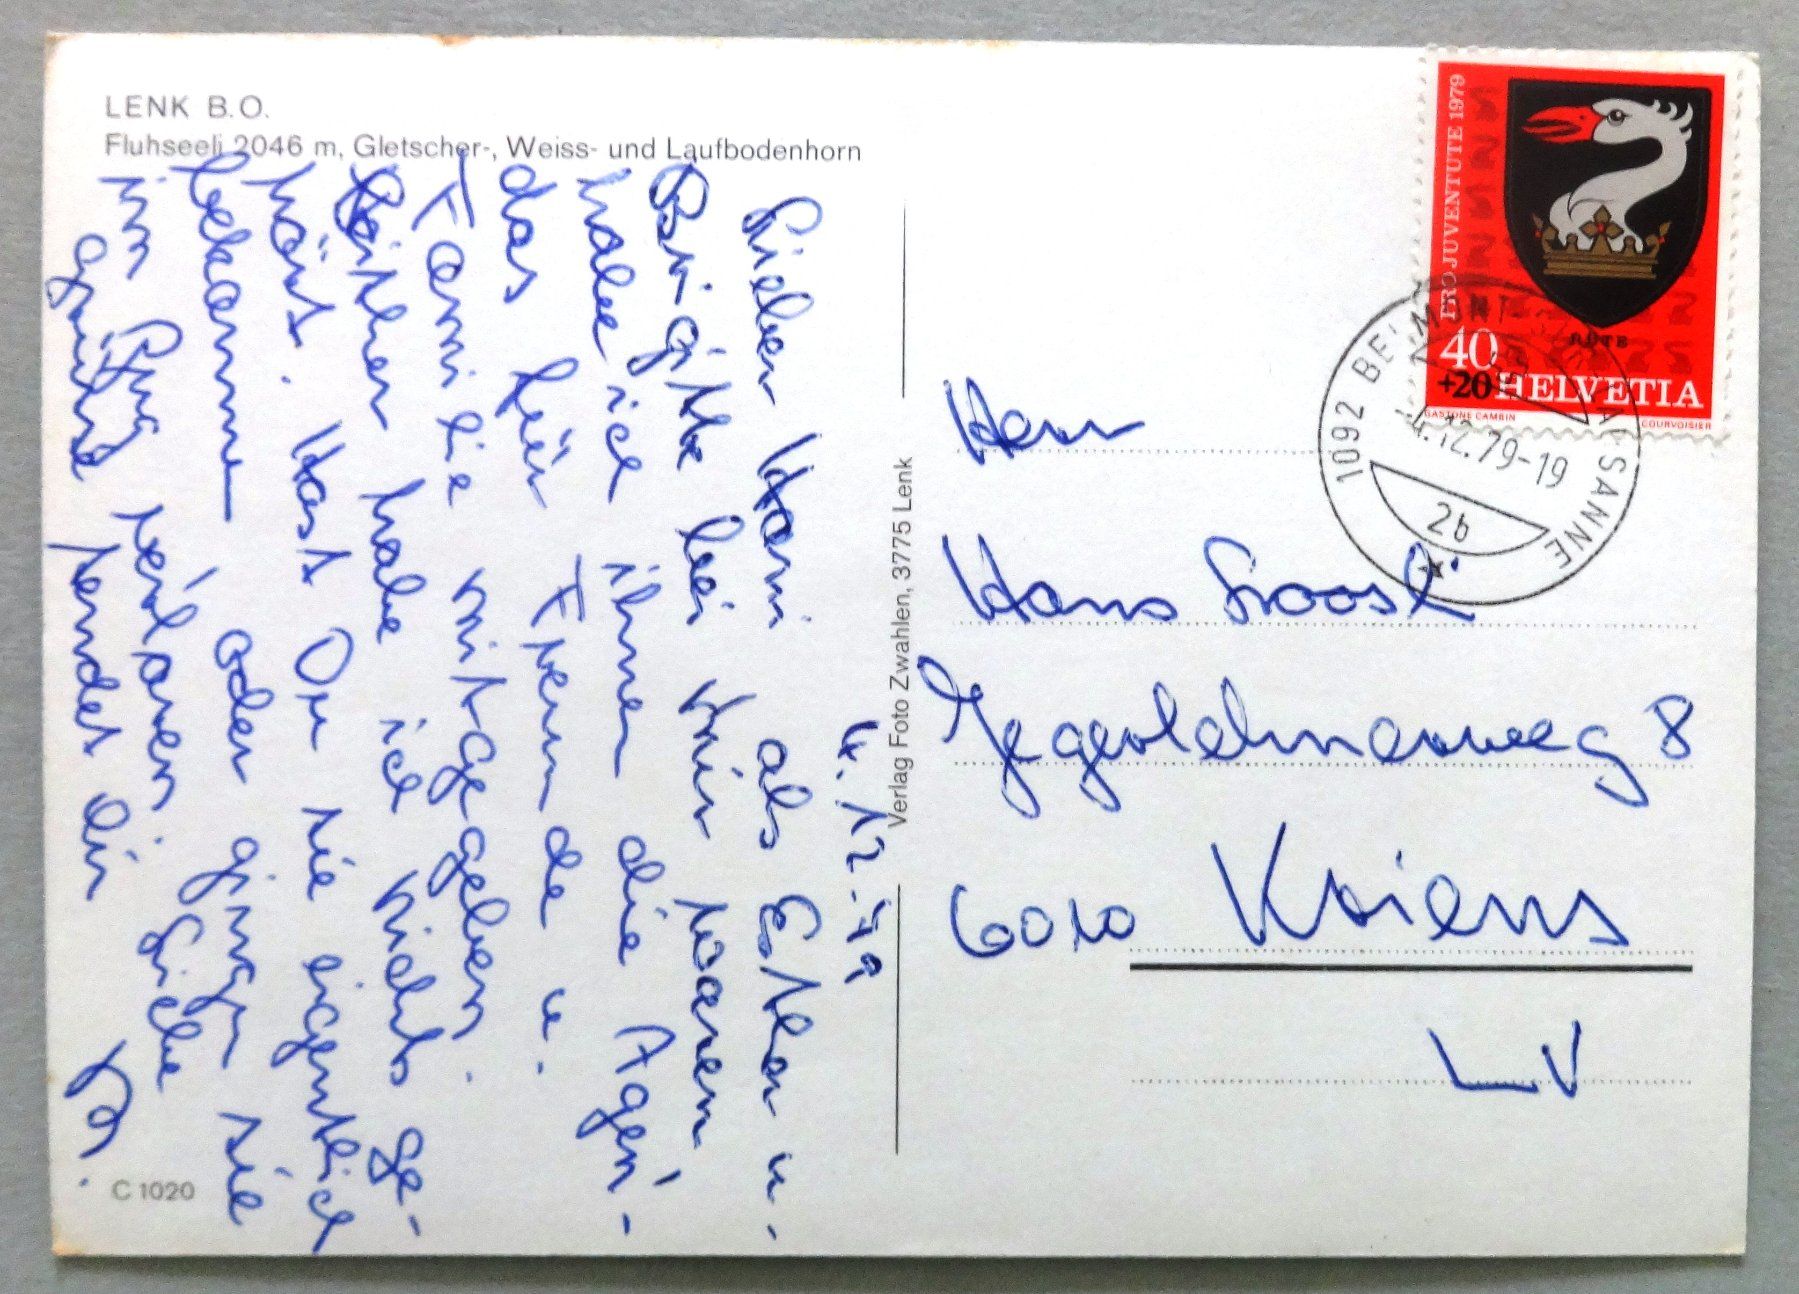 LENK B.O.
Fluhseeli 2046 m, Gletscher-, Weiss- und Laufbodenhorn
4.12.79
Lieber Hans als Esther u.
Brigitte bei mir waren
habe ich ihnen die Agen-
das für Freunde u.
Familie mitgegeben.
Seither habe ich nichts ge-
hört. Hast Du sie eigentlich
bekommen oder gingen sie
im Zug verloren. Liebe
Grüsse sendet Dir
Verlag Foto Zwahlen, 3775 Lenk
C 1020
PRO JUVENTUTE 1979
RÜTE
40
+20 HELVETIA
GASTONE CAMBIN
COURVOISIER
1092 BELMONT-SUR-LAUSANNE
-4.12.79-19
2b
Herr
Hans Loosli
8
6010 Kriens
LU